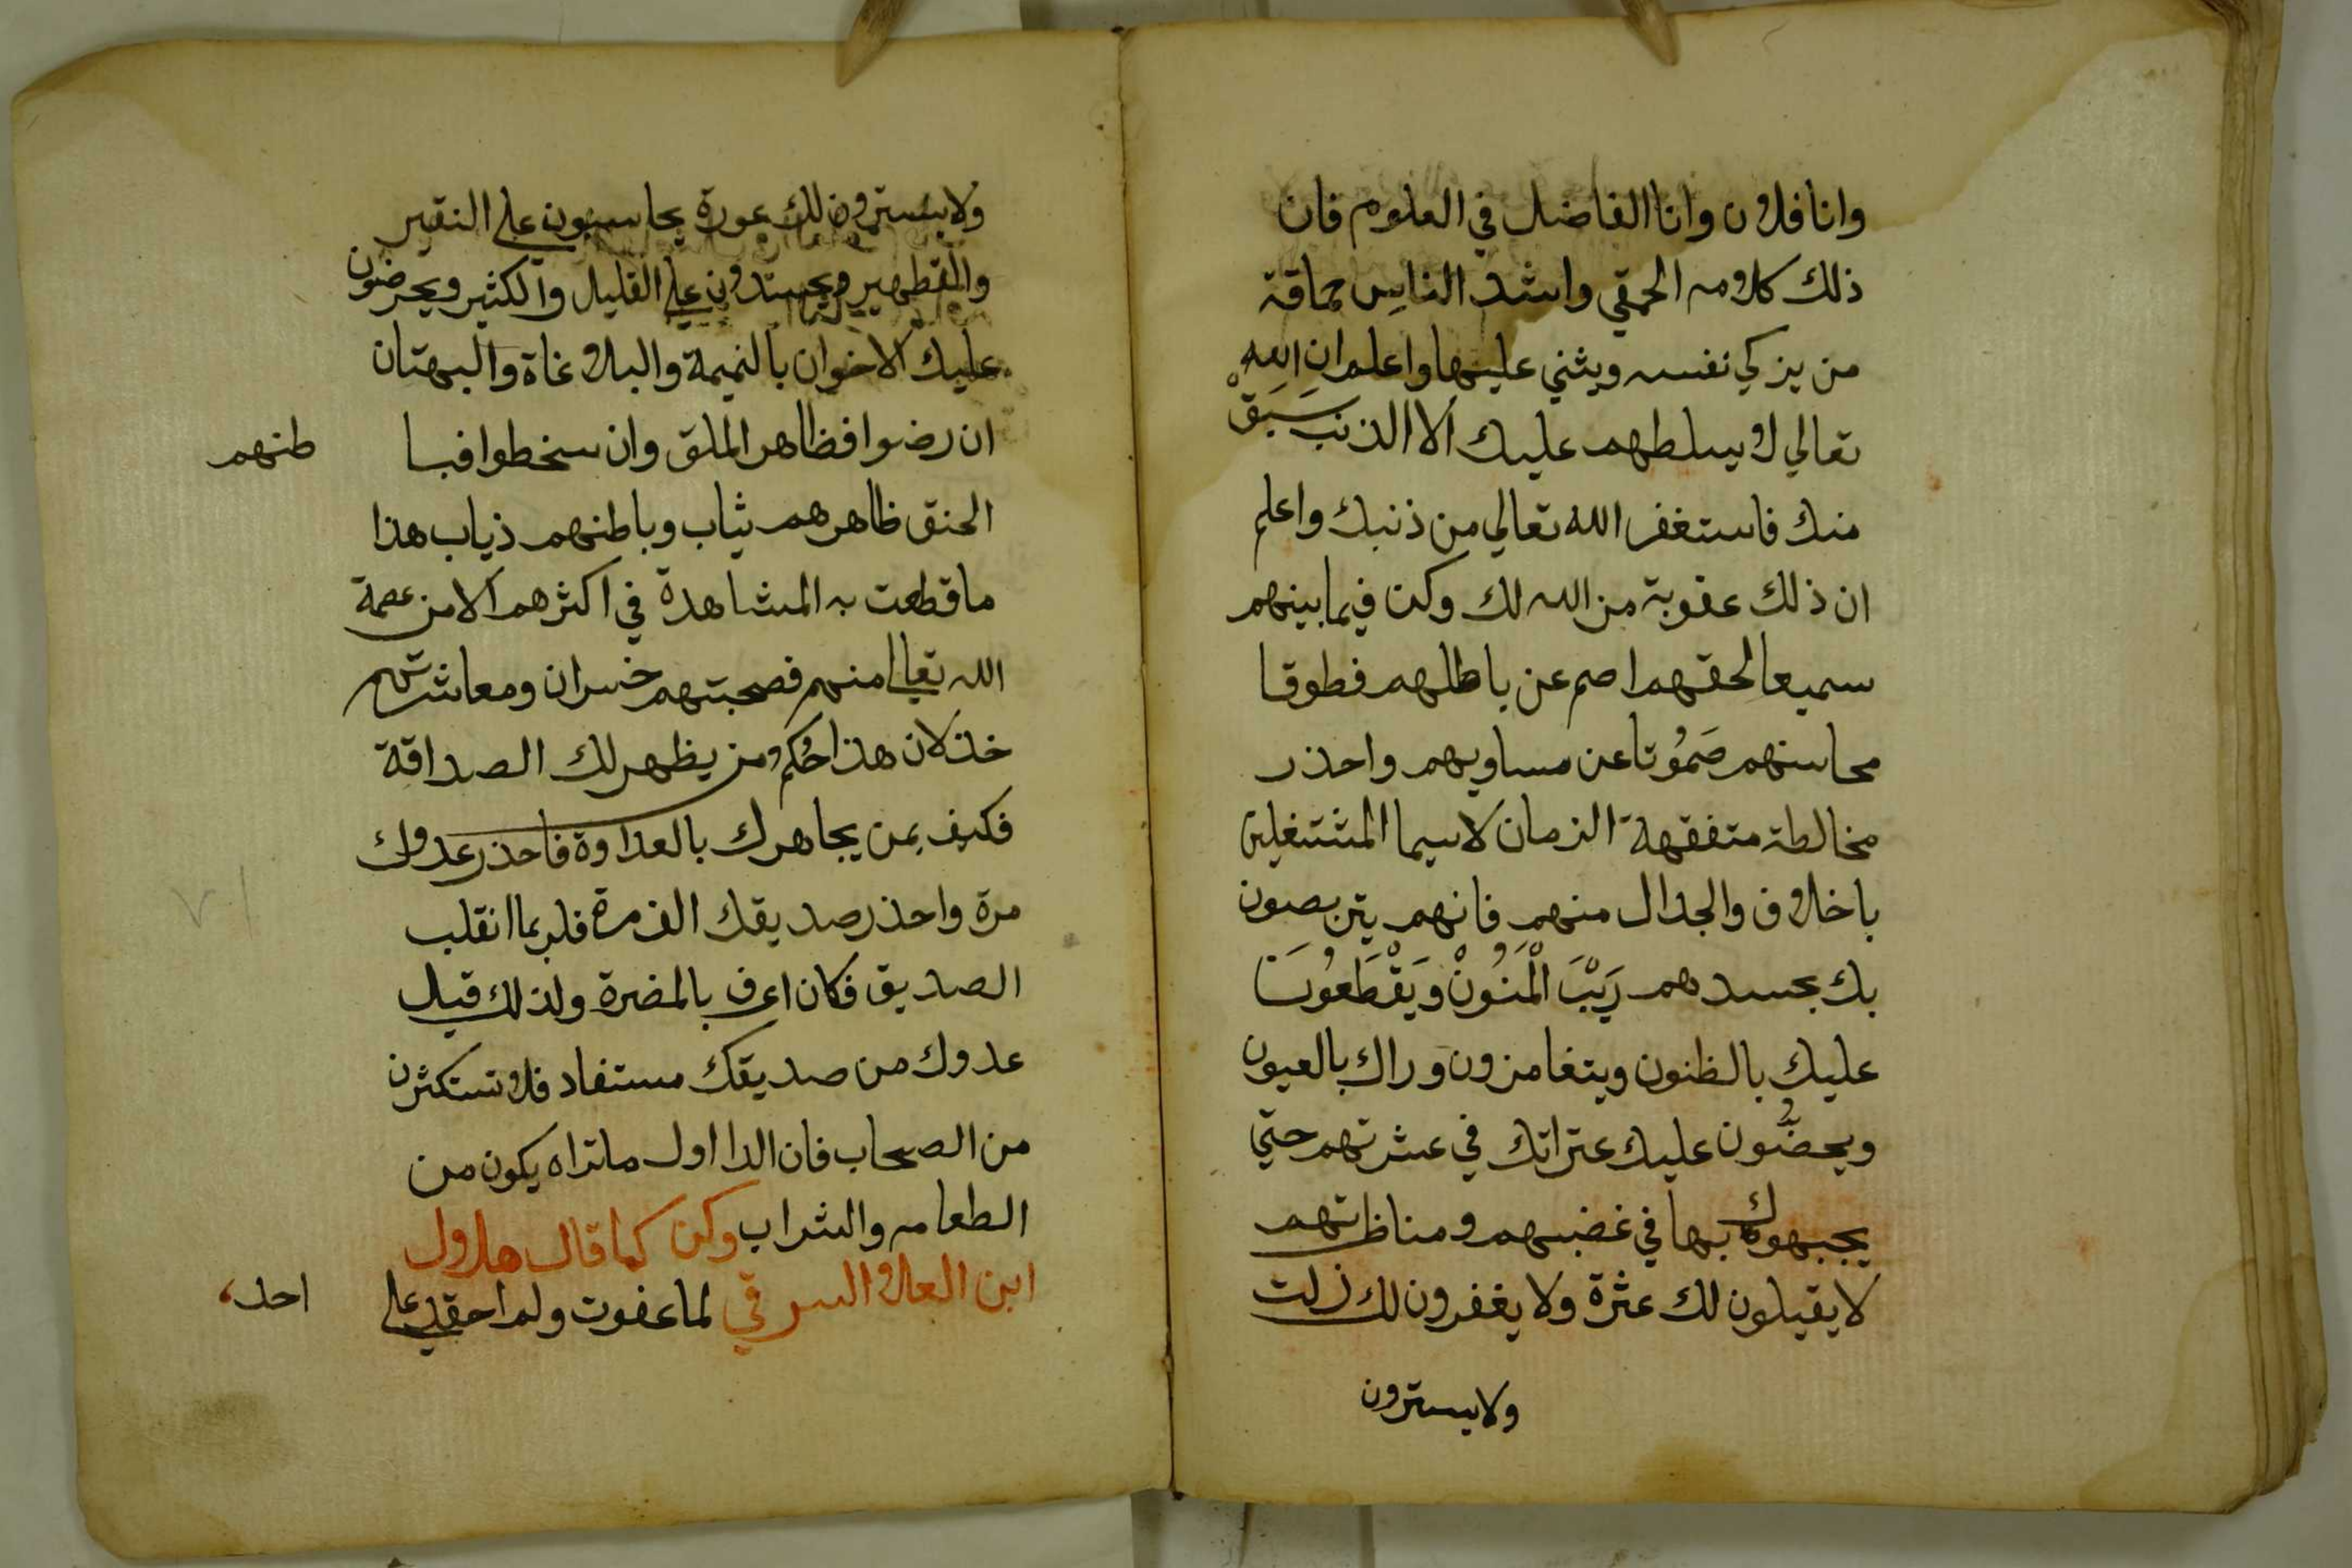 وانا فلان وانا الفاضل في العلوم فان
ذلك كلام الحمقي واشد الناس حماقة
من يزكي نفسه ويثني عليها واعلم ان الله
تعالي لا يسلطهم عليك الا الذنب سَبَقْ
منك فاستغفر الله تعالي من ذنبك واعلم
ان ذلك عقوبة من الله لك وكن فيما بينهم
سميعا لحقهم اصم عن باطلهم فطوقا
محاسنهم صَمُوتا عن مساويهم واحذر
مخالطة متفقهة الزمان لاسيما المشتغلين
باخلاف والجدال منهم فانهم يتربصون
بك بحسدهم رَيْبَ الْمَنُونْ وَيَقْطَعُونَ
عليك بالظنون ويتغامزون وراك بالعيون
ويحضُّون عليك عتراتك في عشرتهم حتي
يجبهوك بها في غضبهم ومناظراتهم
لا يقيلون لك عثرة ولا يغفرون لك زلت
ولا يسترون
ولا يسترون لك عورة يحاسبون علي النقير
والقطهير ويحسدون علي القليل والكثير ويحرضون
عليك الاخوان بالنميمة والبلاغاة والبهتان
ان رضوا فظاهر الملق وان سخطوا فبا طنهم
الحنق ظاهرهم ثياب وباطنهم ذياب هذا
ما قطعت به المشاهدة في اكثرهم الا من عصمة
الله تعالي منهم فصحبتهم خسران ومعاشرتهم
خذلان هذا حُكم من يظهر لك الصداقة
فكيف بمن يجاهرك بالعداوة فاحذر عدوك
مرة واحذر صديقك الف مرة فلربما انقلب
الصديق فكان اعرف بالمضرة ولذلك قيل
عدوك من صديقك مستفاد فلا تستكثرن
من الصحاب فان الدا اول ما تراه يكون من
الطعام والشراب وكن كما قال هلال
ابن العلا السرقي لما عفوت ولم احقد علي احد